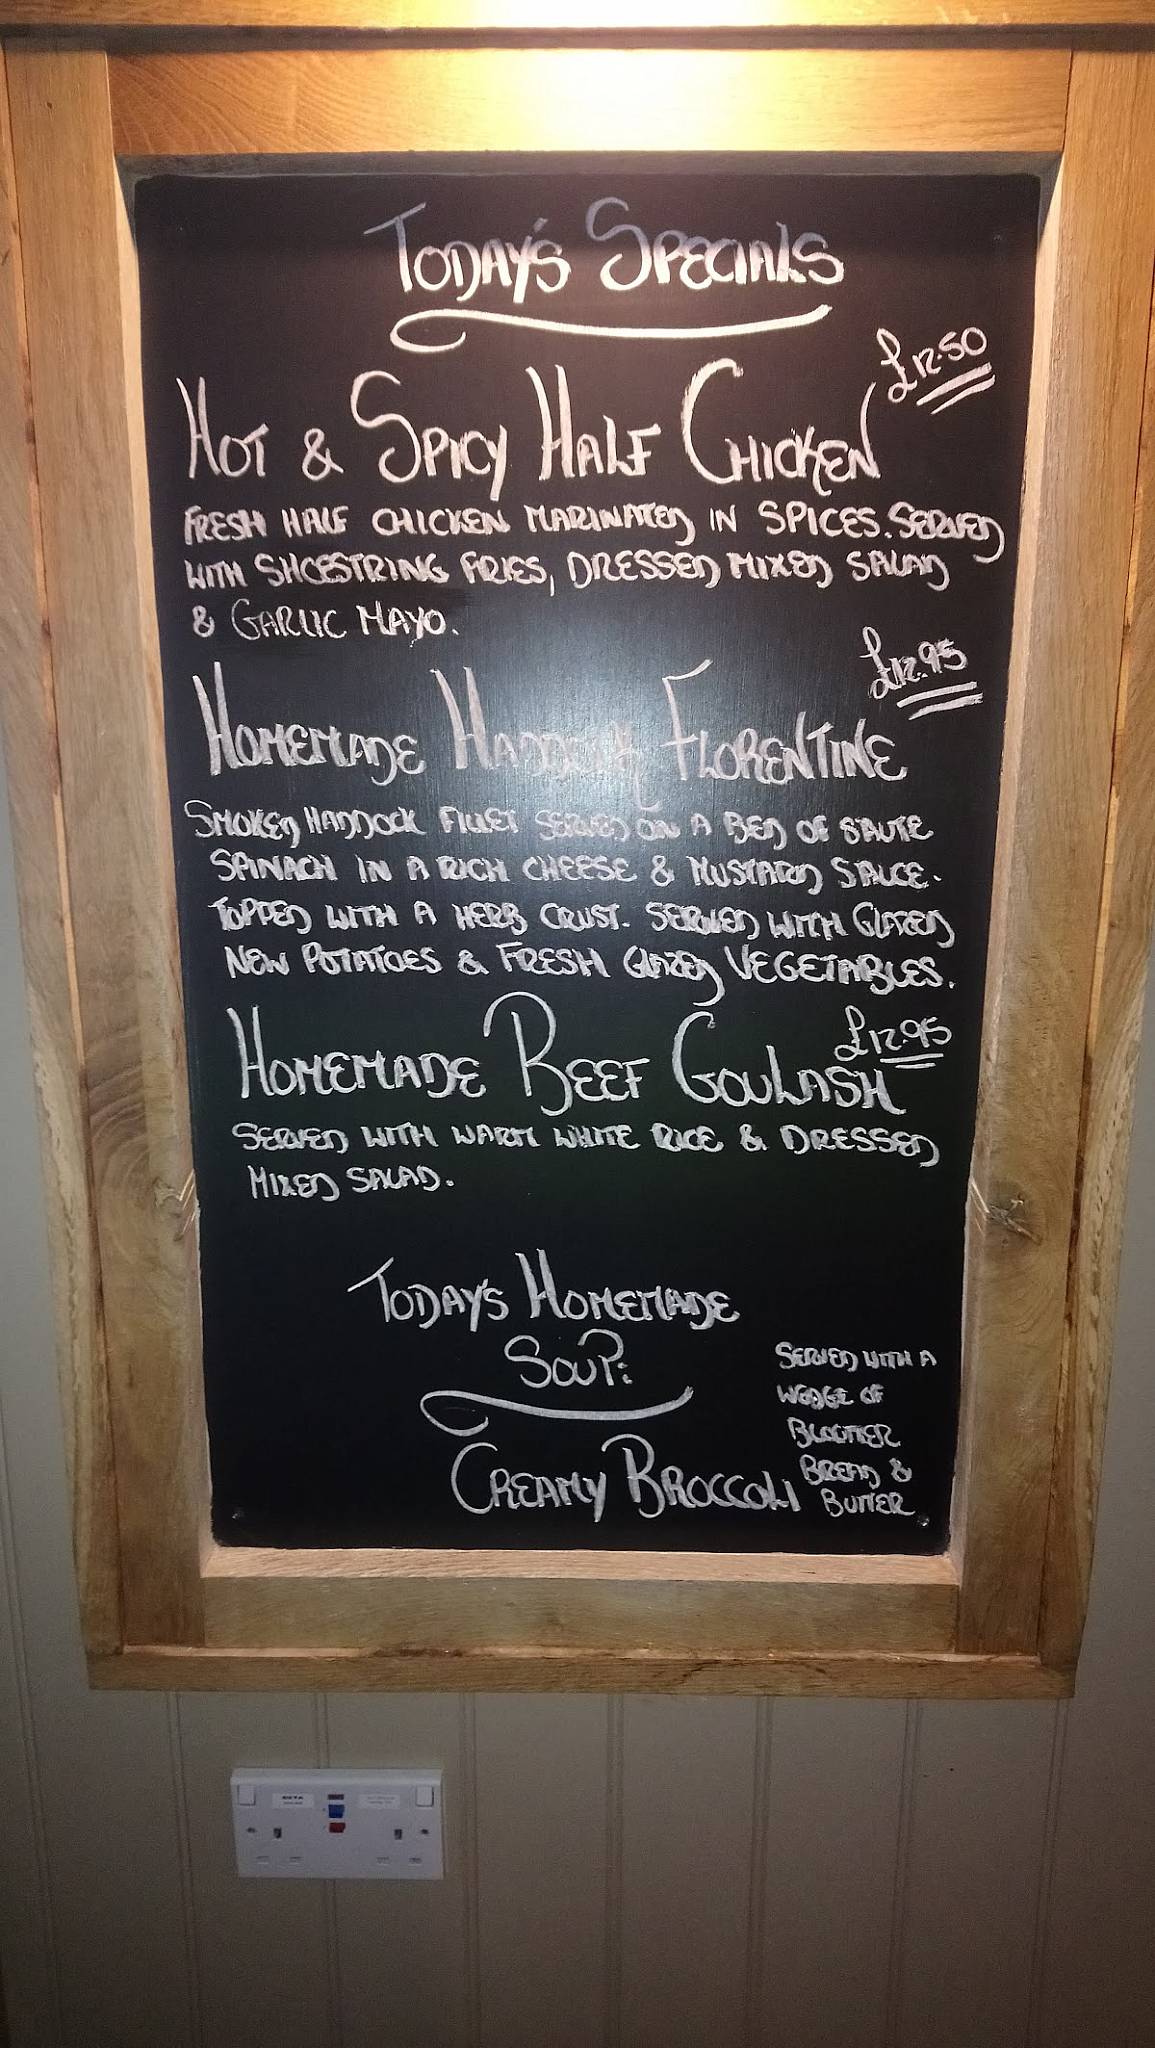 Today's Specials
£12.50
Hot & Spicy Half Chicken
Fresh half chicken marinated in spices. Served
with shoestring fries, dressed mixed salad
& Garlic Mayo.
£12.95
Homemade Haddock Florentine
Smoked haddock fillet served on a bed of saute
spinach in a rich cheese & mustard sauce.
Topped with a herb crust. Served with glazed
new potatoes & fresh glazed vegetables.
£12.95
Homemade Beef Goulash
Served with warm white rice & dressed
mixed salad.
Today's Homemade
Soup:
Creamy Broccoli
Served with a
wedge of
bloomer
bread &
butter